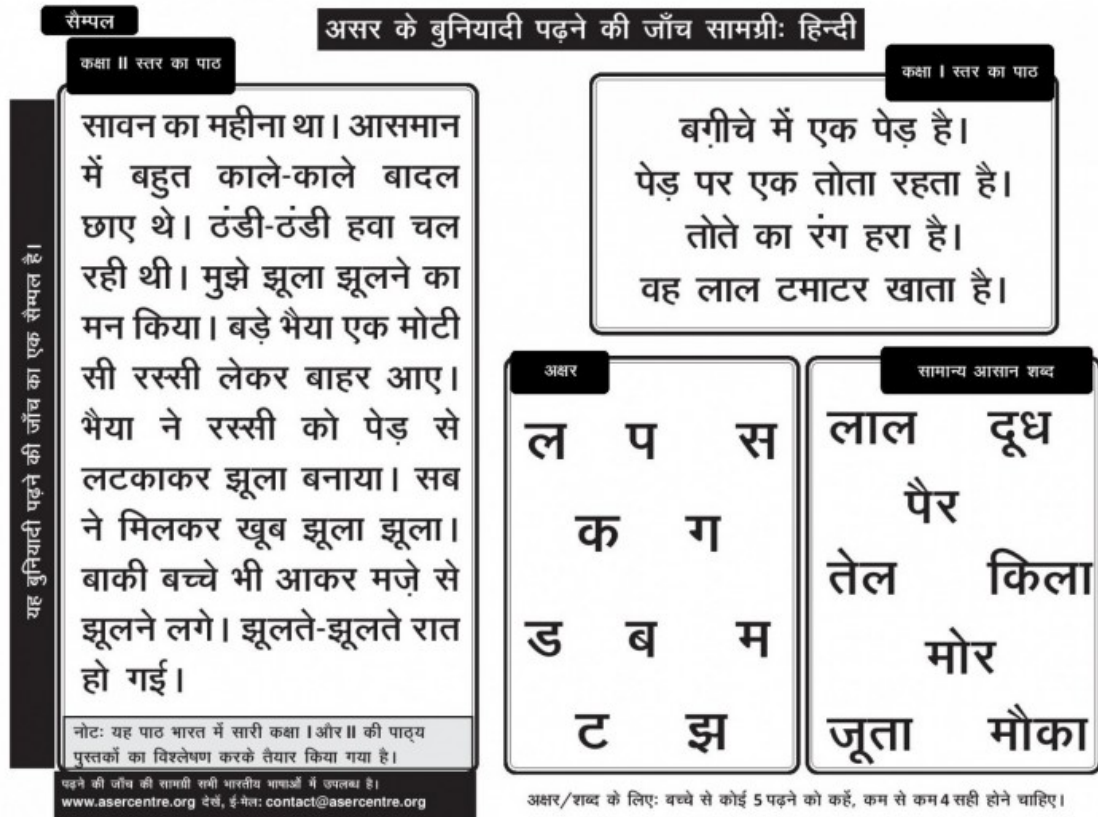 सैम्पल
असर के बुनियादी पढ़ने की जाँच सामग्रीः हिन्दी
यह बुनियादी पढ़ने की जाँच का एक सैम्पल है।
कक्षा II स्तर का पाठ
सावन का महीना था। आसमान
में बहुत काले-काले बादल
छाए थे। ठंडी-ठंडी हवा चल
रही थी। मुझे झूला झूलने का
मन किया। बड़े भैया एक मोटी
सी रस्सी लेकर बाहर आए।
भैया ने रस्सी को पेड़ से
लटकाकर झूला बनाया। सब
ने मिलकर खूब झूला झूला।
बाकी बच्चे भी आकर मज़े से
झूलने लगे। झूलते-झूलते रात
हो गई।
नोटः यह पाठ भारत में सारी कक्षा I और II की पाठ्य
पुस्तकों का विश्लेषण करके तैयार किया गया है।
पढ़ने की जाँच की सामग्री सभी भारतीय भाषाओं में उपलब्ध है।
www.asercentre.org देखें, ई-मेल: contact@asercentre.org
कक्षा I स्तर का पाठ
बग़ीचे में एक पेड़ है।
पेड़ पर एक तोता रहता है।
तोते का रंग हरा है।
वह लाल टमाटर खाता है।
अक्षर
ल प स
क ग
ड ब म
ट झ
सामान्य आसान शब्द
लाल दूध
पैर
तेल किला
मोर
जूता मौका
अक्षर/शब्द के लिए: बच्चे से कोई 5 पढ़ने को कहें, कम से कम 4 सही होने चाहिए।